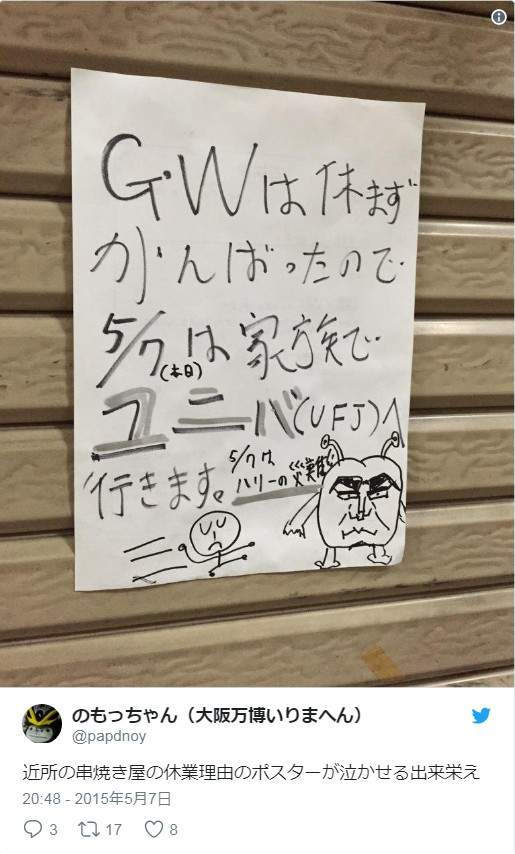 G.Wは休まず
がんばったので
5/7は家族で
(本日)
ユニバ(UFJ)へ
行きます。
5/7は
ハリーの災難
のもっちゃん（大阪万博いりまへん）
@papdnoy
近所の串焼き屋の休業理由のポスターが泣かせる出来栄え
20:48 - 2015年5月7日
3 17 8